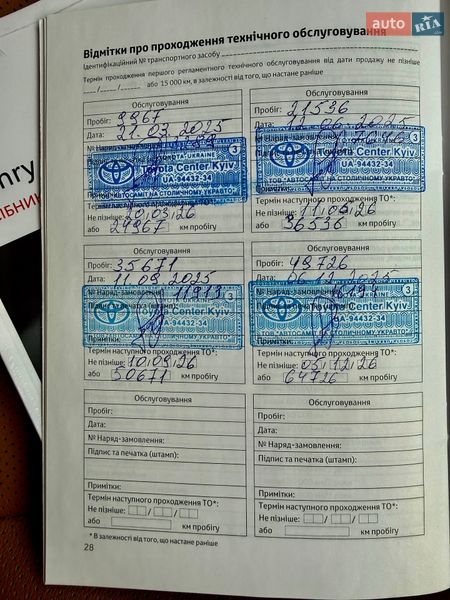 auto RIA
Відмітки про проходження технічного обслуговування
Ідентифікаційний № транспортного засобу
Термін проходження першого регламентного технічного обслуговування від дати продажу не пізніше
___/___/___ або 15 000 км, в залежності від того, що настане раніше
nry
Обслуговування
Пробіг: 9967
Дата: 21.03.2025
№ Наряд-
TOYOTA-UKRAINE
Toyota Center Kyiv
UA-94432-34
3
ТОВ "АВТОСАМІТ НА СТОЛИЧНОМУ УКРАВТО"
Термін наступного проходження ТО*:
Не пізніше: 20/03/26
або 24967 км пробігу
Обслуговування
Пробіг: 21536
Дата: 12.06.2025
№ Наряд-замовлення:
Toyota Center Kyiv
UA-94432-34
3
ТОВ "АВТОСАМІТ НА СТОЛИЧНОМУ УКРАВТО"
Примітки:
Термін наступного проходження ТО*:
Не пізніше: 11/06/26
або 36536 км пробігу
Обслуговування
Пробіг: 35671
Дата: 11.09.2025
№ Наряд-замовлення:
Toyota Center Kyiv
UA-94432-34
3
ТОВ "АВТОСАМІТ НА СТОЛИЧНОМУ УКРАВТО"
Примітки:
Термін наступного проходження ТО*:
Не пізніше: 10/09/26
або 50671 км пробігу
Обслуговування
Пробіг: 49726
Дата: 06.12.2025
№ Наряд-замовлення:
Toyota Center Kyiv
UA-94432-34
3
ТОВ "АВТОСАМІТ НА СТОЛИЧНОМУ УКРАВТО"
Примітки:
Термін наступного проходження ТО*:
Не пізніше: 05/12/26
або 64726 км пробігу
Обслуговування
Пробіг:
Дата:
№ Наряд-замовлення:
Підпис та печатка (штамп):
Примітки:
Термін наступного проходження ТО*:
Не пізніше: / /
або км пробігу
Обслуговування
Пробіг:
Дата:
№ Наряд-замовлення:
Підпис та печатка (штамп):
Примітки:
Термін наступного проходження ТО*:
Не пізніше: / /
або км пробігу
* В залежності від того, що настане раніше
28